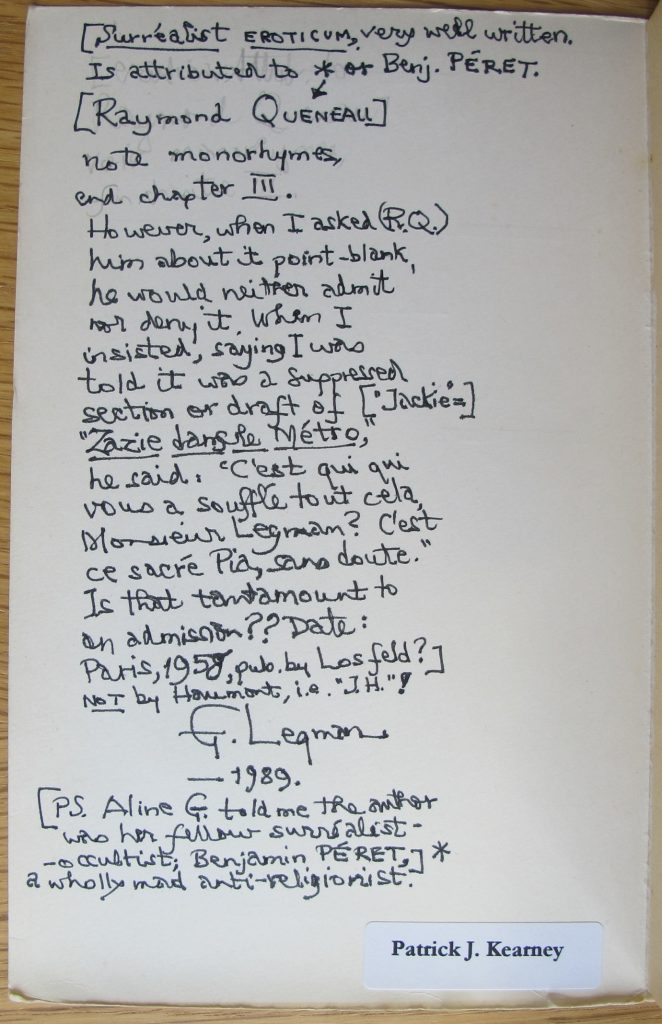 [Surréalist EROTICUM, very well written.
Is attributed to * or Benj. PÉRET.
[Raymond QUENEAU]
note monorhymes,
end chapter III.
However, when I asked (R.Q.)
him about it point-blank,
he would neither admit
nor deny it. When I
insisted, saying I was
told it was a suppressed
section or draft of ["Jackie"=]
"Zazie dans le Métro,"
he said: "C'est qui qui
vous a soufflé tout cela,
Monsieur Legman? C'est
ce sacré Pia, sans doute."
Is that tantamount to
an admission?? Date:
Paris, 1958, pub. by Losfeld?]
NOT by Haumont, i.e. "J.H."!
G. Legman
— 1989.
[PS. Aline G. told me the author
was her fellow surréalist-
-occultist; Benjamin PÉRET,] *
a wholly mad anti-religionist.
Patrick J. Kearney